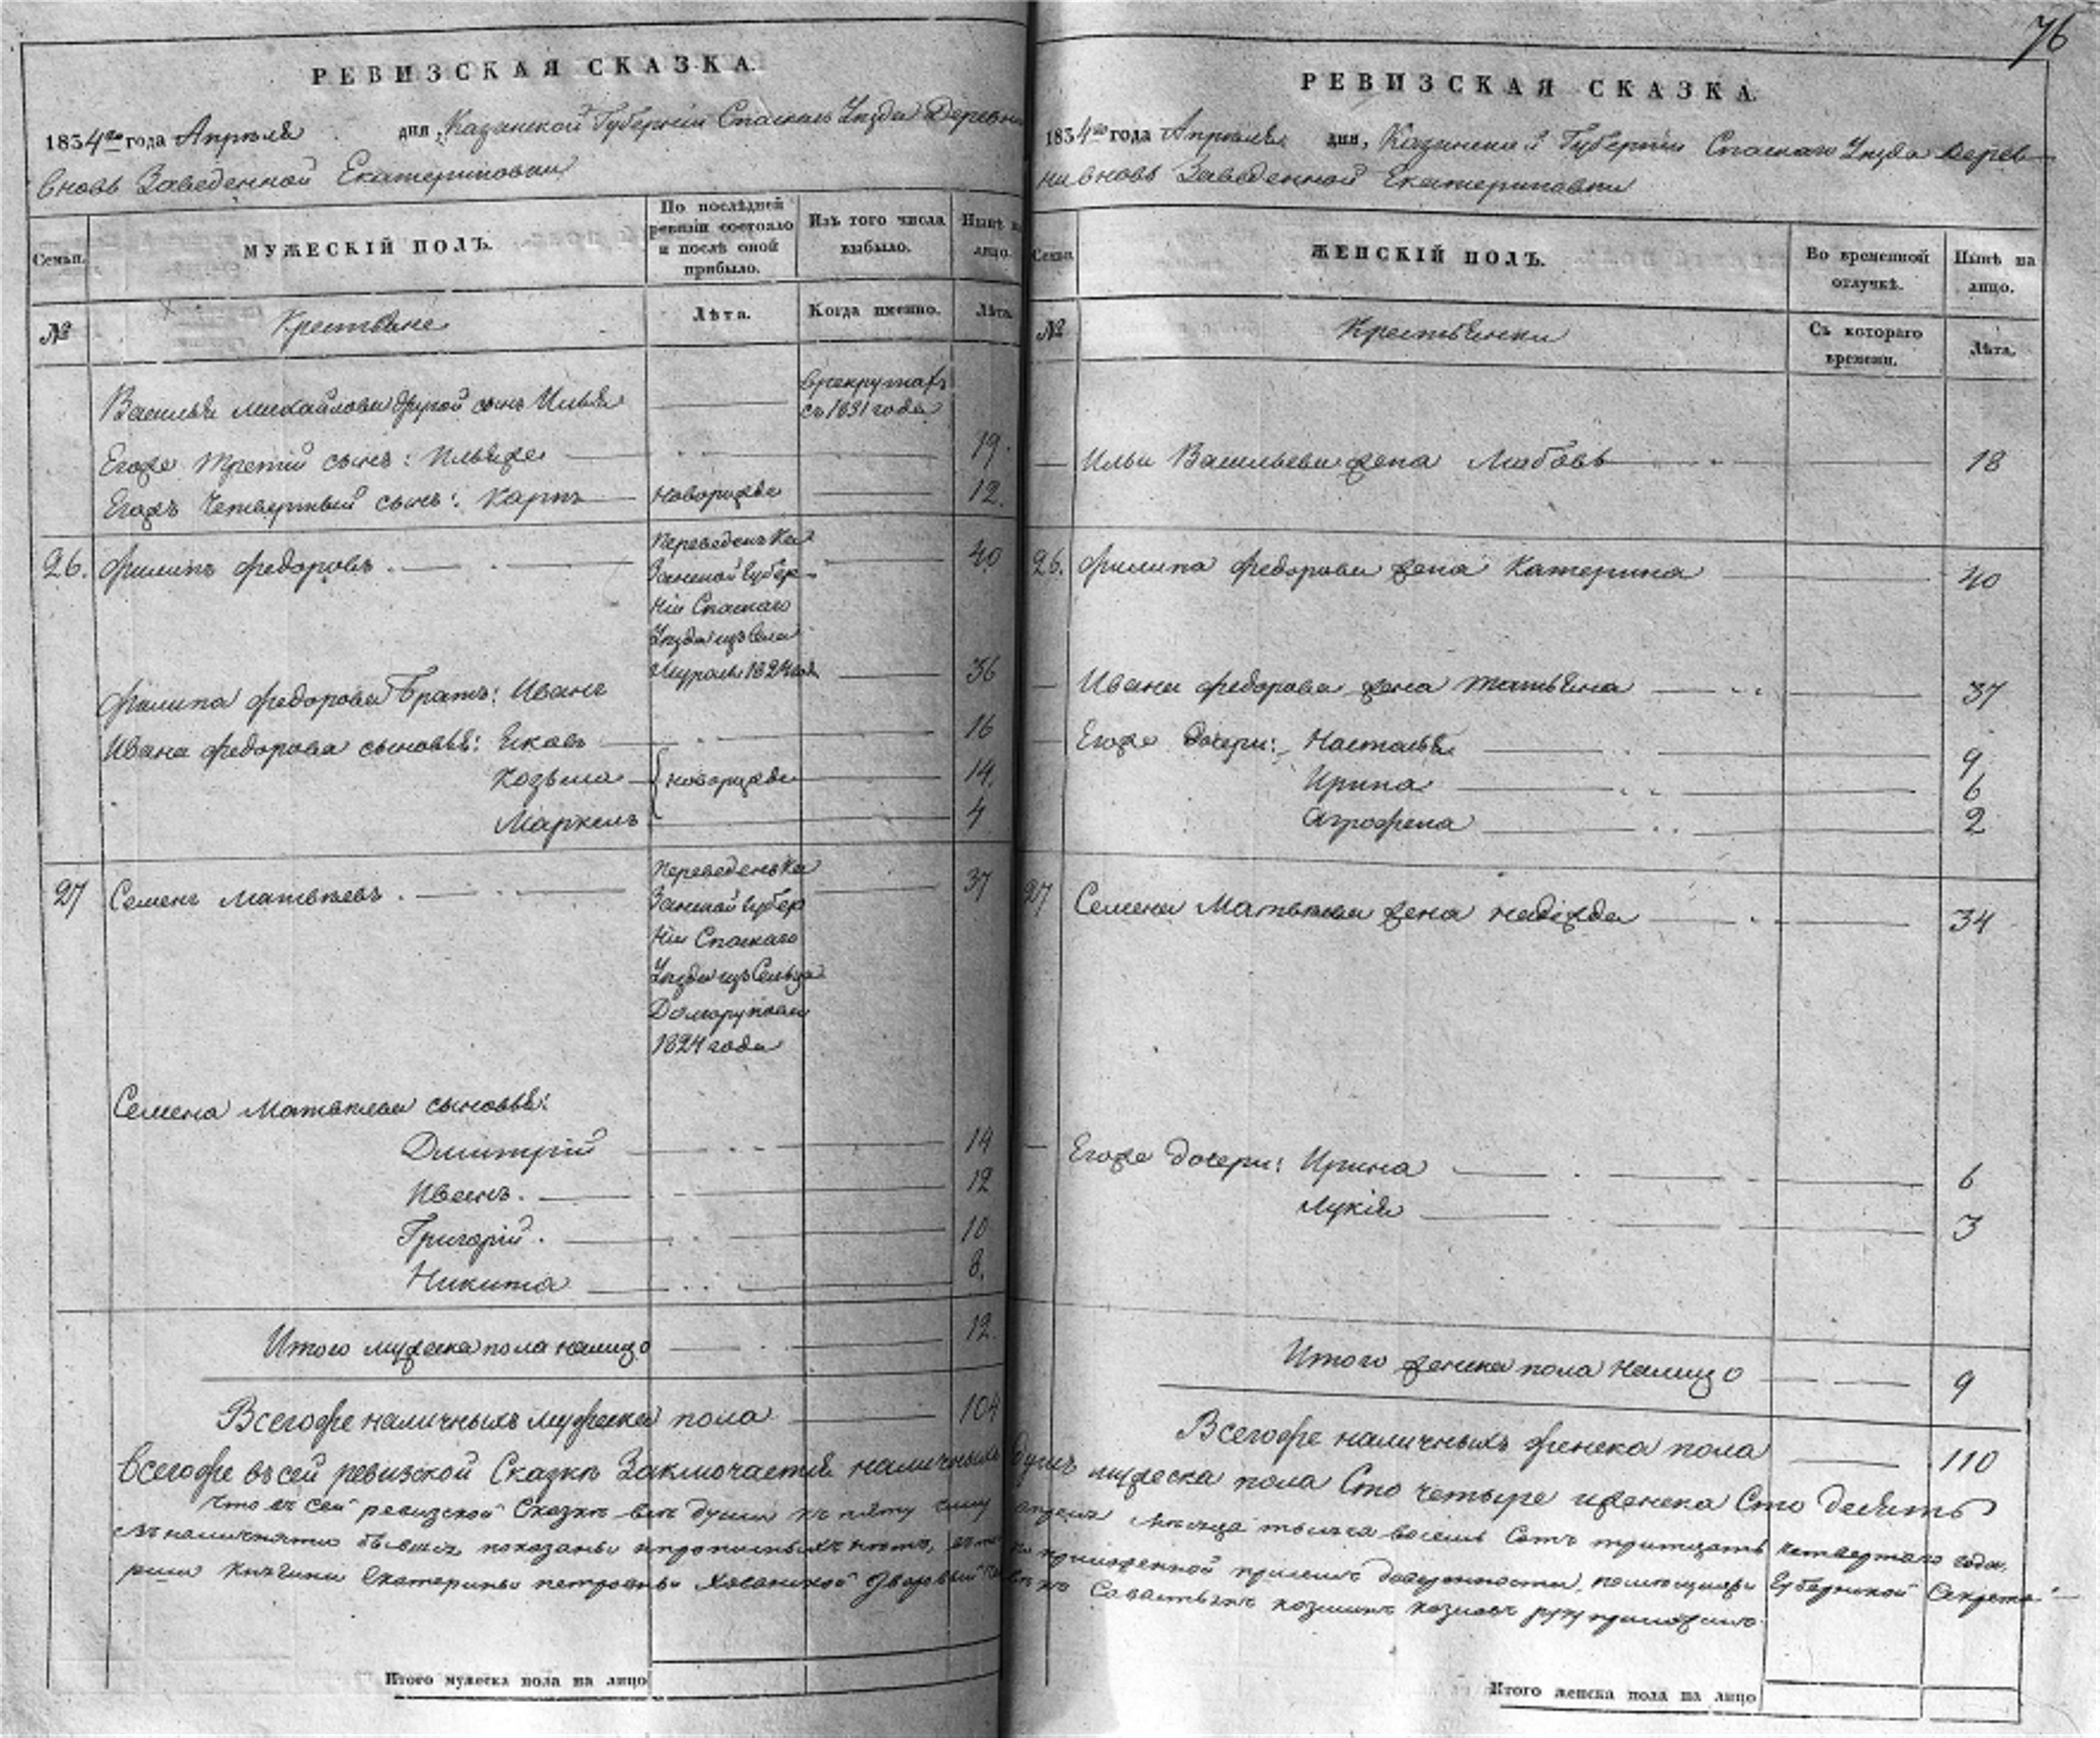 76
РЕВИЗСКАЯ СКАЗКА.
1834го года Апреля дня, Казанской Губернiи Спаскаго Уезда Деревни
вновь Заведенной Екатериновки
Семьи.
МУЖЕСКIЙ ПОЛЪ.
По послѣдней ревизiи состояло и послѣ оной прибыло.
Изъ того числа выбыло.
Нынѣ на лицо.
№
Крестьяне
Лѣта.
Когда именно.
Лѣта.
Василья михайлова другой сынъ Илья
в рекрутахъ
съ 1831 года
Егоже третiй сынъ: Илья же 19.
Егожъ Четвертый сынъ: Карпъ новорожде 12.
26. Филипъ Федоровъ. Переведенъ Ка 40
занской губер
нiи Спаскаго
Уезда изъ Села
1824 года
Филипа Федорова Братъ: Иванъ 36
Ивана Федорова сыновья: Яковъ 16
Козьма новорожде 14.
Маркелъ 4
27 Семенъ Матвѣевъ. Переведенъ Ка 37
занской губер
нiи Спаскаго
Уезда изъ Сельца
Долгоруково
1824 года
Семена Матвѣева сыновья:
Дмитрiй 14
Иванъ. 12
Григорiй. 10
Никита 8.
Итого мужеска пола налицо 12.
Всегоже наличныхъ мужеска пола 104
РЕВИЗСКАЯ СКАЗКА.
1834го года Апреля дня, Казанской Губернiи Спаскаго Уезда Дерев
ни вновь Заведенной Екатериновки
Семьи.
ЖЕНСКIЙ ПОЛЪ.
Во временной отлучкѣ.
Нынѣ на лицо.
№
Крестьянки
Съ котораго времени.
Лѣта.
Ильи Васильева жена Любовь 18
26. Филипа Федорова жена Катерина 40
Ивана Федорова жена Татьяна 37
Егоже дочери: Настасья 9
Ирина 6
Агрофена 2
27 Семена Матвѣева жена Надежда 34
Егоже дочери: Ирина 6
Лукiя 3
Итого женска пола налицо 9
Всегоже наличныхъ женска пола 110
Всегоже въ сей ревизской Сказкѣ Заключается наличныхъ душъ мужеска пола Сто четыре и женска Сто десять
Что въ сей ревизской Сказкѣ все души къ апреля месяца тысяча восемь Сотъ тритцать четвертаго года,
наличнаго показаны и прописныхъ нетъ, помещицы Губернской Секрета
рши Княгини Екатерины петровны дворовый козминъ козловъ руку приложилъ.
Итого мужеска пола на лицо
Итого женска пола на лицо